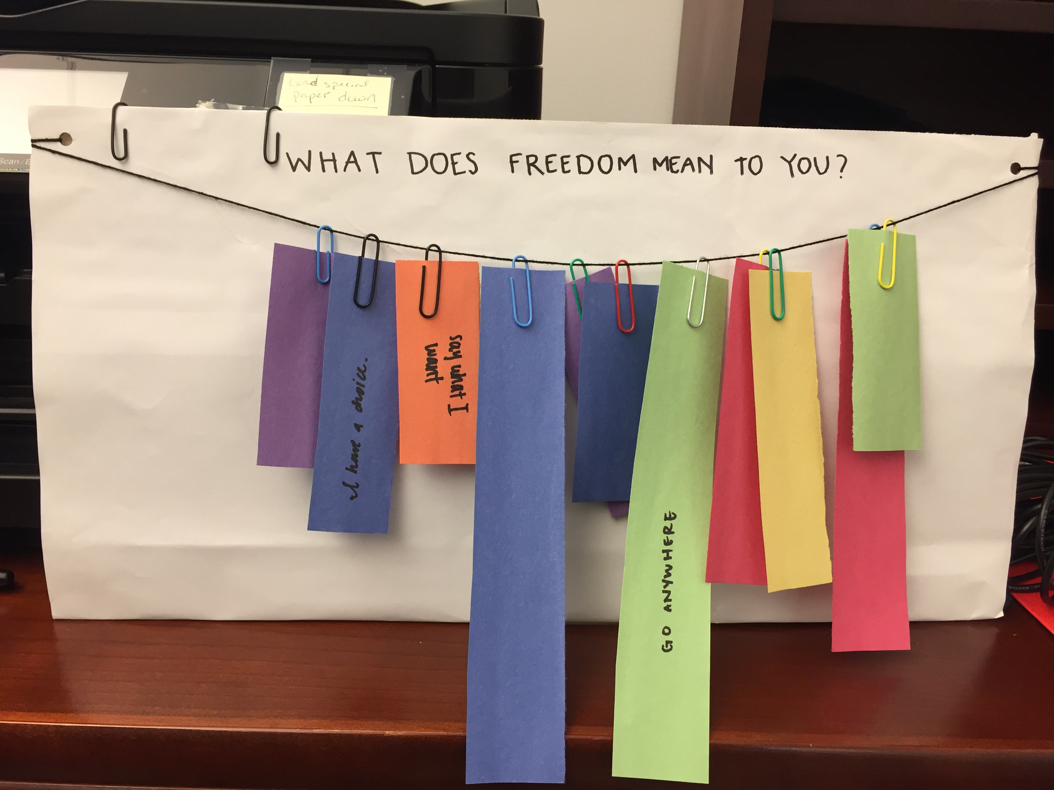 Load special
paper down
Scan/E
WHAT DOES FREEDOM MEAN TO YOU?
I have a choice.
say what I
want
GO ANYWHERE